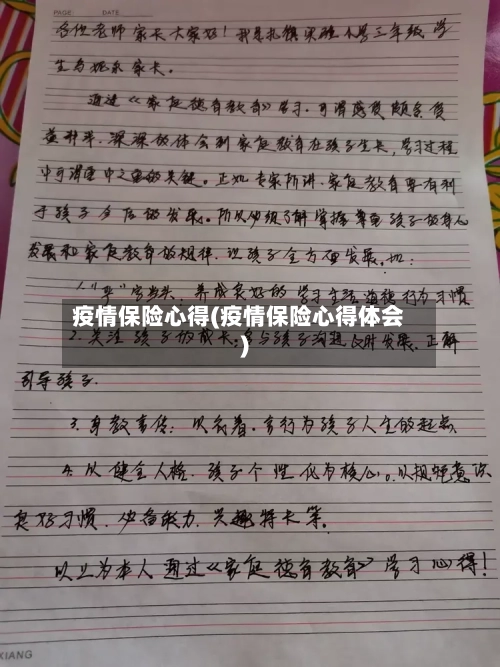 PAGE DATE
各位老师家长大家好！我是扎镇实验小学三年级学
生 家长。
通过《家庭德育教育》学习，可谓感质颇多
益非平，深深的体会到家庭教育在孩子生长，学习过程
中可谓重中之重的关键。正如专家所讲，家庭教育要有利
于孩子今后的发展。所以必须了解掌握 孩子的身心
发展和家庭教育的规律，让孩子全方面发展，如：
1."严"字当头，养成良好的学习生活道德行为习惯
疫情保险心得(疫情保险心得体会
)
2.关注孩子的成长，多与孩子沟通及时发展，正解
引导孩子。
3.身教言传：以 言行为孩子人生的起点
4.从健全人格，孩子个性化为核心。以规矩意识
良好习惯，必备能力，兴趣特长等。
以上为本人通过《家庭德育教育》学习心得！
XIANG